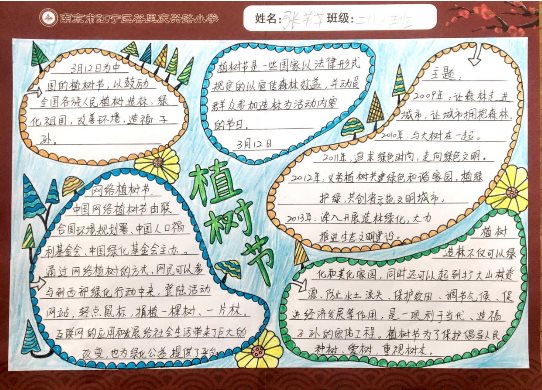 南京市江宁区谷里庆兴路小学
姓名：
班级：
3月12日为中
国的植树节，以鼓励
全国各族人民植树造林，绿
化祖国，改善环境，造福子
孙。
植树节是一些国家以法律形式
规定的以宣传森林效益，并动员
群众参加造林为活动内容
的节日。
3月12日
主题：
2009年：让森林走进
城市，让城市拥抱森林。
2010年：与大树在一起。
2011年，追求绿色时尚，走向绿色文明。
2012年，义务植树共建绿色和谐家园，植绿
护绿，共创省文明城市。
2013年，深入开展造林绿化，大力
推进生态文明建设。
植树节
网络植树节
中国网络植树节由联
合国环境规划署、中国人口福
利基金会、中国绿化基金会主办。
通过网络植树的方式，网民可以参
与到西部绿化行动中来，登陆活动
网站，轻点鼠标，植植一棵树、一片林，
互联网的应用和发展给社会生活带来了巨大的
改变，也为绿化公益提供了平台
植树
造林不仅可以绿
化和美化家园，同时还可以起到扩大山林资
源、防止水土流失、保护农田、调节气候、促
进经济发展等作用，是一项利于当代、造福
子孙的宏伟工程。植树节为了保护倡导人民
种树、爱树、重视树木。